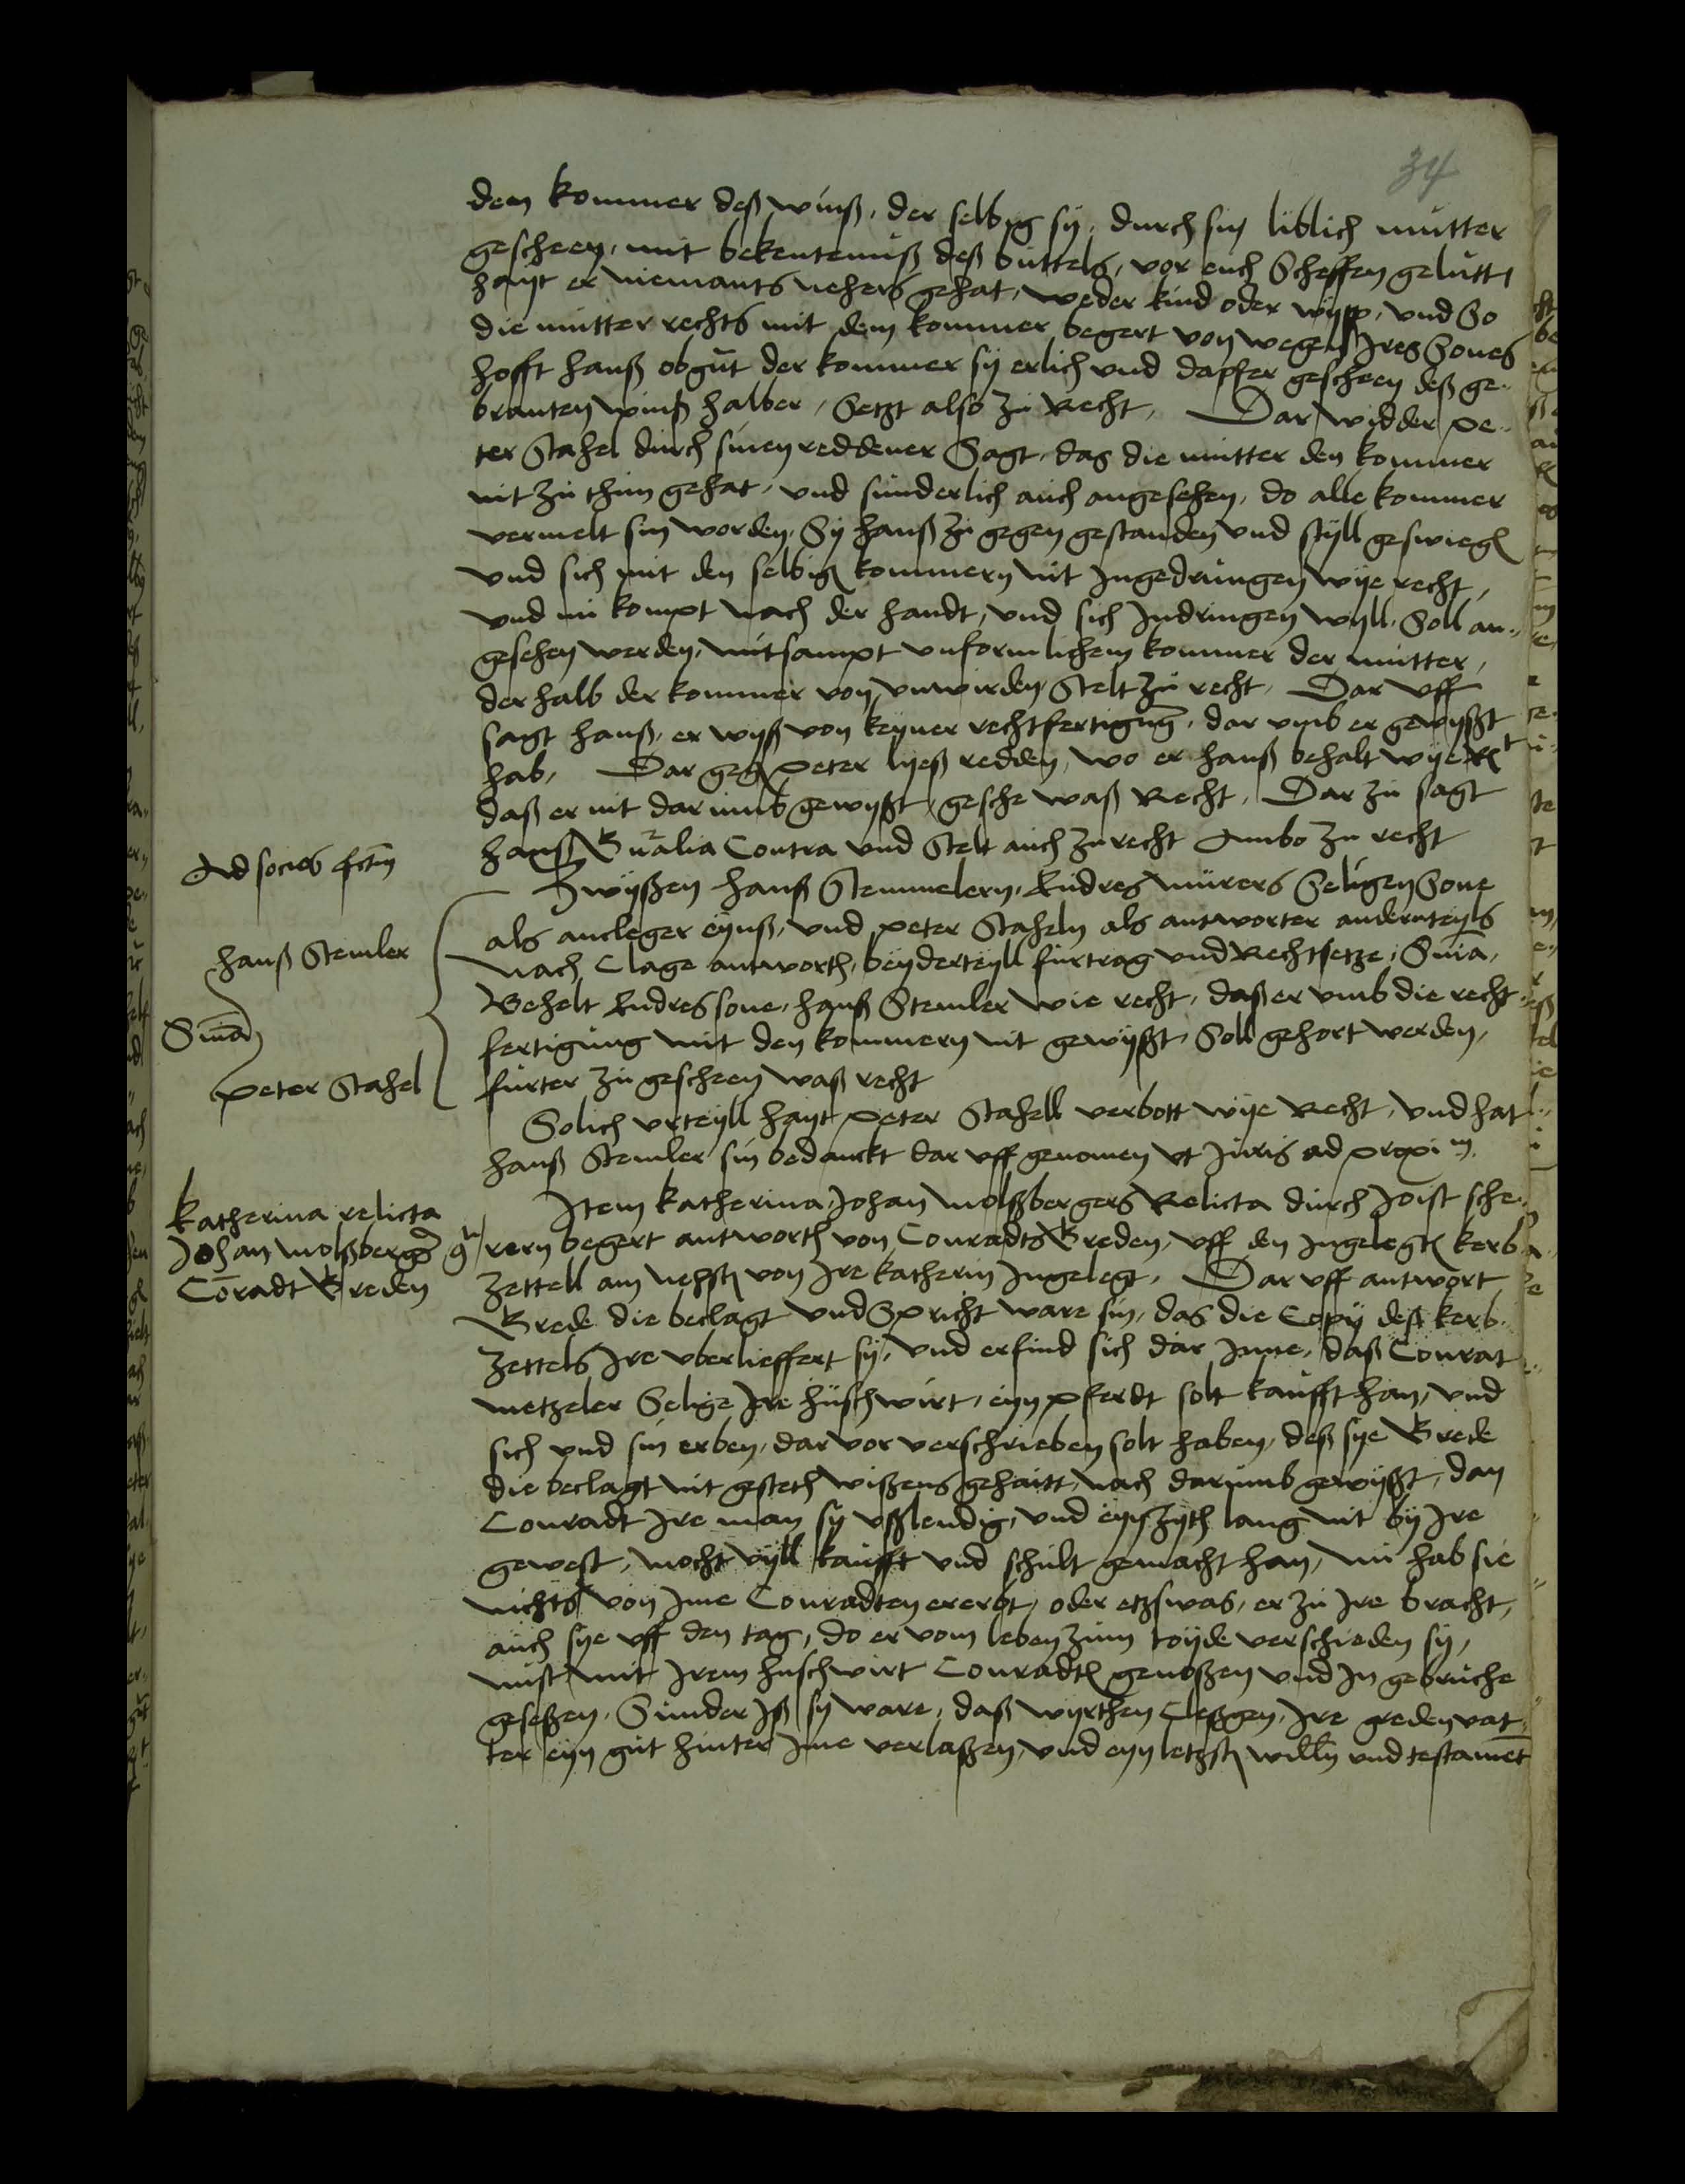 34
dem kommer deß winß, der selbig sy, durch sin liblich mutter
gescheen, mit bekentemiß deß buttels, vor euch Scheffen gelutt
hayt er niemants nehers gehat, weder kind oder wypp, und So
die mutter rechts mit dem kommer begert von wegen Jres Sones
hofft hanß obgut der kommer sy erlich und dapfer gescheen deß ge-
branten winß halber, Setzt also zu Recht, Dar widder pe-
ter Stahel durch sinen reddener Sagt, das die mutter den kommer
nit zu thun gehat, und sunderlich auch angesehen, do alle kommer
vermelt sin worden, Sy hanß zu gegen gestanden und styll geswiegen
und sich mit den selbigen kommern nit Jngedrungen wye recht,
und nu kompt nach der handt, und sich Jndringen wyll, Soll an-
gesehen werden, mitsampt unformlichem kommer der mutter,
der halb der kommer von unwirden, Stelt zu recht, Dar uff
sagt hanß, er wyß von keyner rechtfertigung, dar umb er gewyßt
hab, Dar gegen peter lyeß redden, wo er hanß behalt wye Recht
daß er nit dar umb gewyßt, geschee waß Recht, Dar zu sagt
hanß Generalia Contra und Stelt auch zu recht Ambo zu recht
Ad socios
Zwyßen hanß Stemmelern, Endres murers Seligen Sone
als ancleger eynß, und peter Staheln als antworter anderteyls
hanß Stemler
nach Clage antworth, beyderteyll furtrag und Rechtsetze, Snia,
Behelt Endres sone, hanß Stemler wie recht, daß er umb die recht-
Snia
fertigung mit den kommern nit gewyßt, Soll gehort werden,
peter Stahel
furter zu gescheen waß recht
Solich urteyll hayt peter Stahell verbott wye Recht, und hat
hanß Stemler sin bedanckt dar uff genomen ut Juris ad proxim
Katherina relicta
Item Katherina Johan wolßbergers Relicta durch Joist sche-
Johan wolßbergers
rern begert antworth von Conradts Greden, uff den Jngelegten kerb-
Conradt Greden
zettell am nehsten von Jre katherin Jngelegt, Dar uff antwort
Grede die beclagt und Spricht ware sin, das die Copy deß kerb-
zettels Jre uberlieffert sy, und erfind sich dar Jnne, daß Conrat
metzeler Selige Jre hußwirt, eyn pferdt solt kaufft han, und
sich und sin erben, dar vor verschrieben solt haben, deß sye Grede
die beclagt nit gesteth wißens gehaitt, nach darumb gewyßt, dan
Conradt Jre man sy ußlendig, und eyn zyth lang nit by Jre
gewest, mocht vyll kaufft und schult gemacht han, nu hab sie
nichts von Jme Conradten ererbt, oder etzswas, er zu Jre bracht,
auch sye uff den tag, do er vom leben zum toyde verschieden sy,
nust mit Jrem hußwirt Conradten genoßen und Jn gebruche
geseßen, Sunder Jß sy ware, daß wyrthen Cleßgen, Jre greden vat-
ter eyn gut hinter Jme verlaßen, und eyn letzsten willn und testament